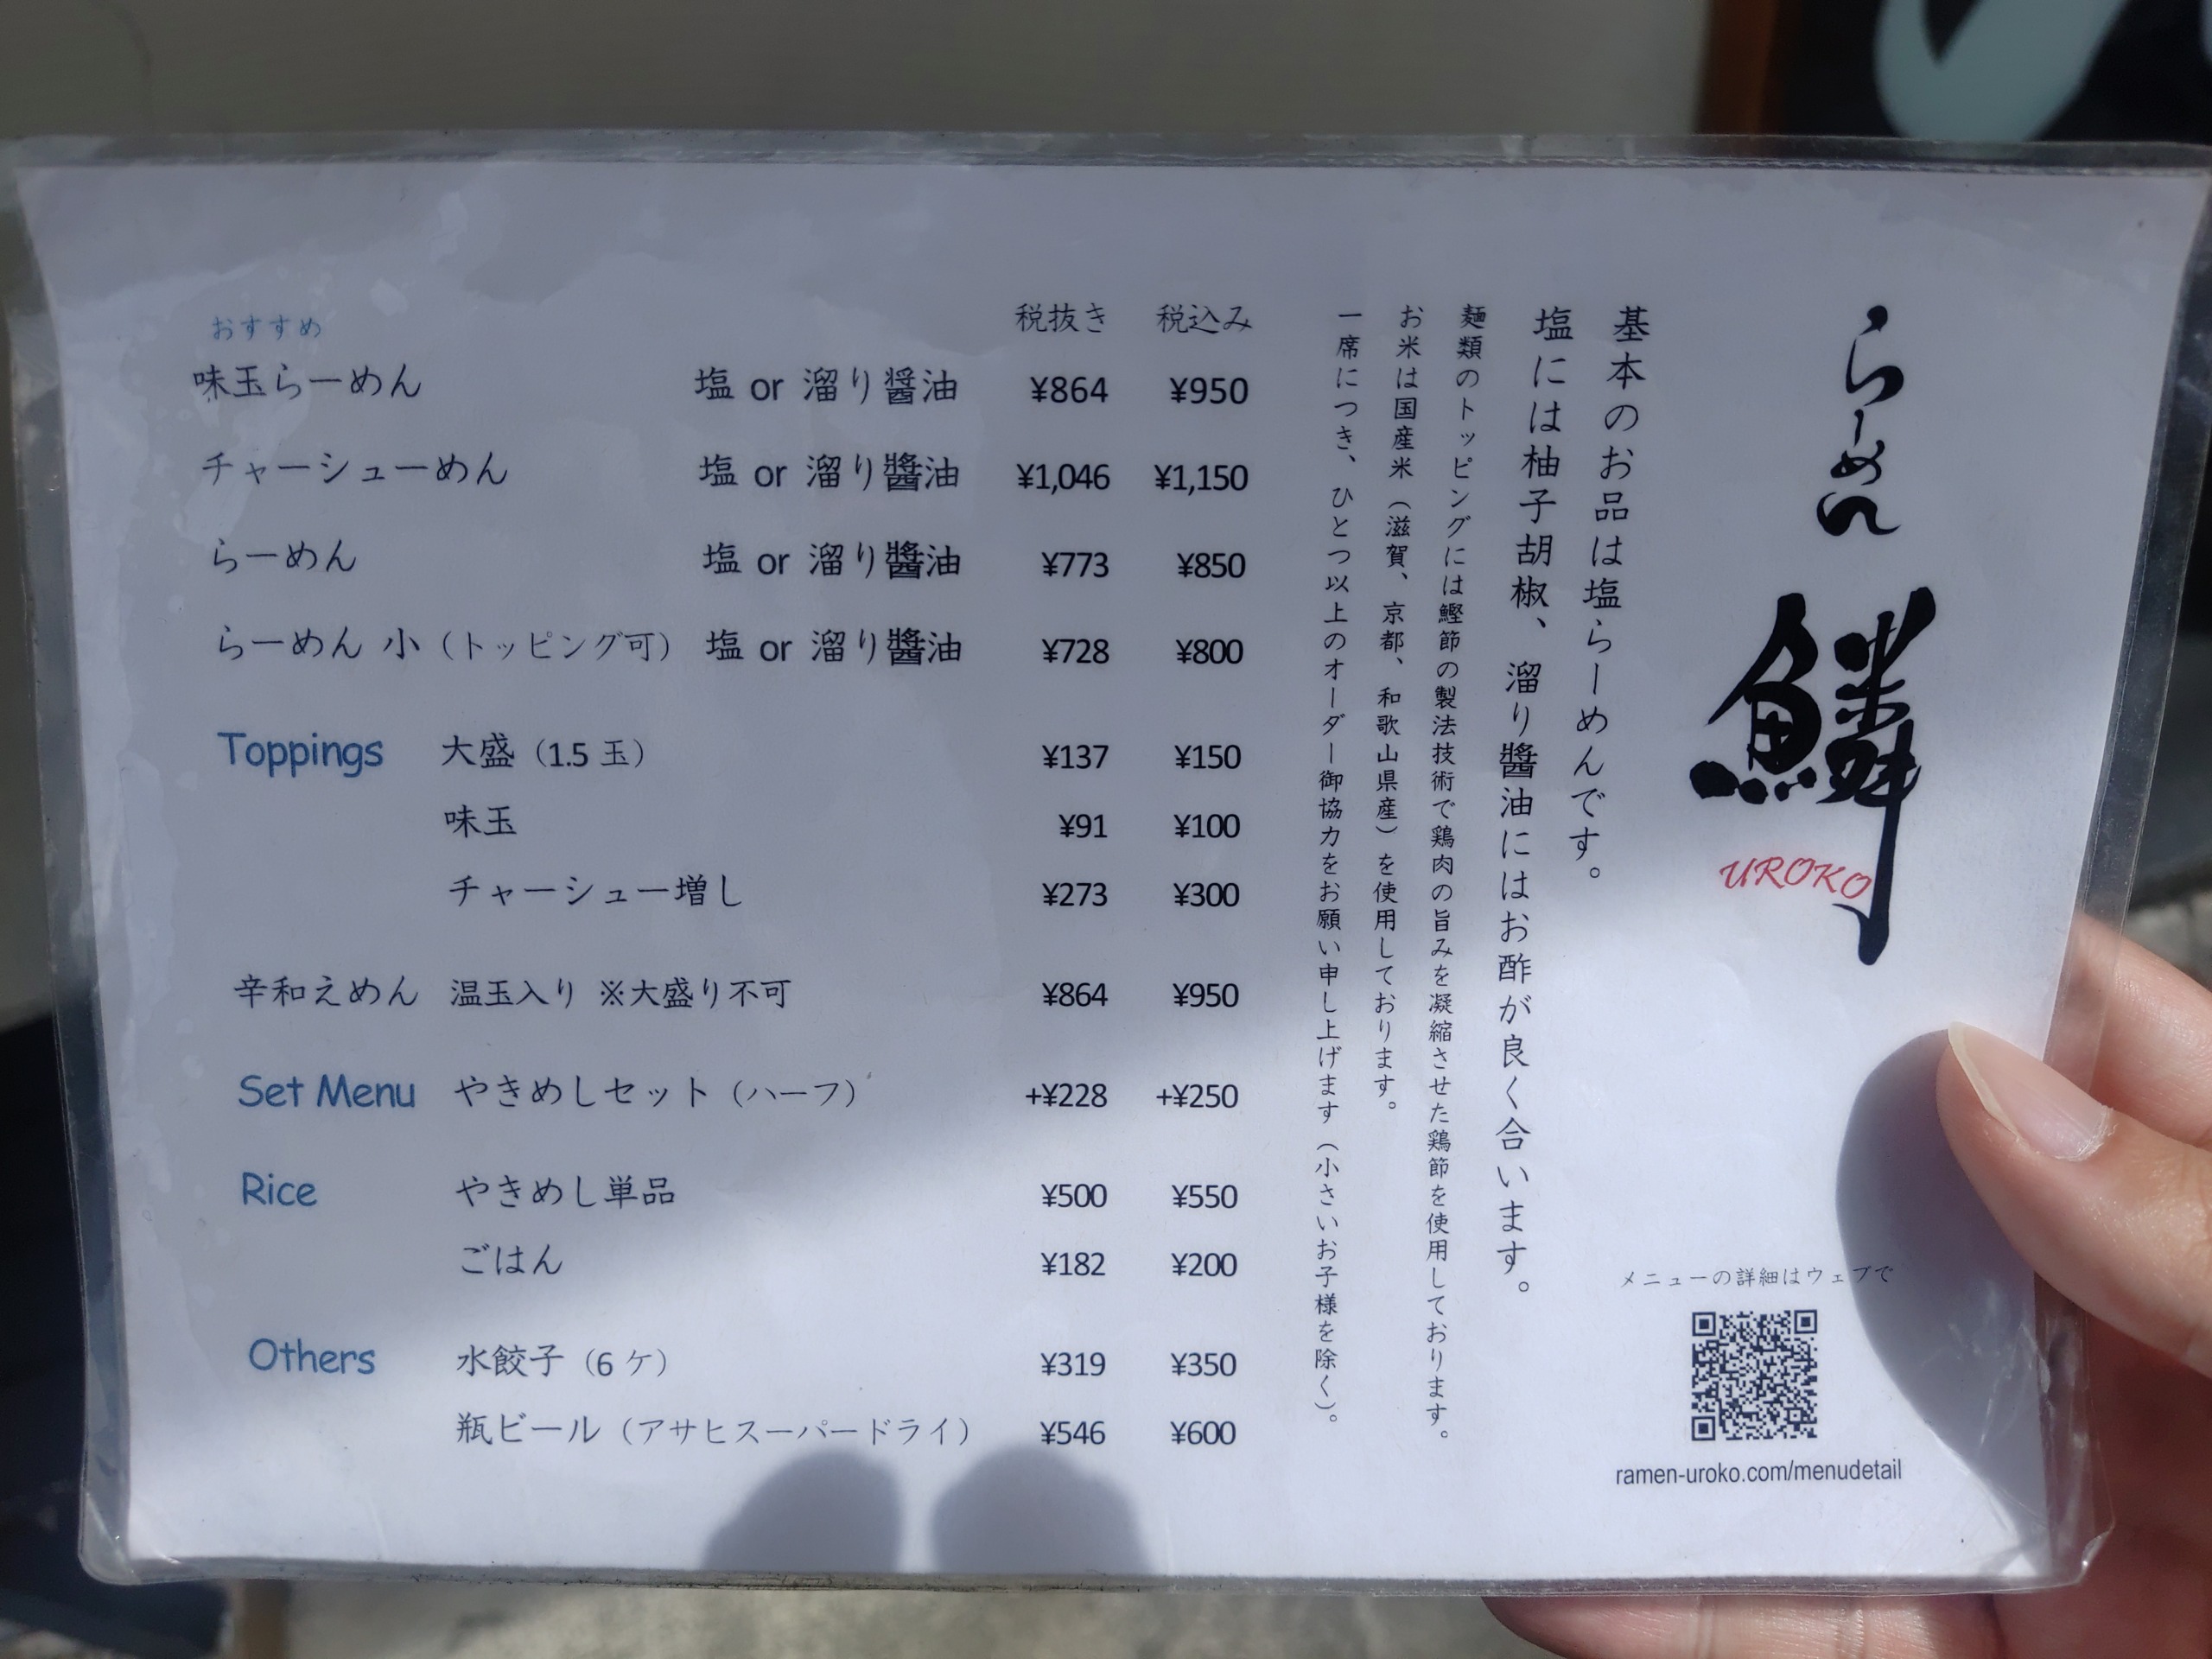 らーめん 鱗
UROKO
基本のお品は塩らーめんです。
塩には柚子胡椒、溜り醬油にはお酢が良く合います。
麺類のトッピングには鰹節の製法技術で鶏肉の旨みを凝縮させた鶏節を使用しております。
お米は国産米（滋賀、京都、和歌山県産）を使用しております。
一席につき、ひとつ以上のオーダー御協力をお願い申し上げます（小さいお子様を除く）。
税抜き 税込み
おすすめ
味玉らーめん 塩 or 溜り醤油 ¥864 ¥950
チャーシューめん 塩 or 溜り醬油 ¥1,046 ¥1,150
らーめん 塩 or 溜り醬油 ¥773 ¥850
らーめん 小（トッピング可） 塩 or 溜り醬油 ¥728 ¥800
Toppings 大盛（1.5 玉） ¥137 ¥150
味玉 ¥91 ¥100
チャーシュー増し ¥273 ¥300
辛和えめん 温玉入り ※大盛り不可 ¥864 ¥950
Set Menu やきめしセット（ハーフ） +¥228 +¥250
Rice やきめし単品 ¥500 ¥550
ごはん ¥182 ¥200
Others 水餃子（6 ケ） ¥319 ¥350
瓶ビール（アサヒスーパードライ） ¥546 ¥600
メニューの詳細はウェブで
ramen-uroko.com/menudetail